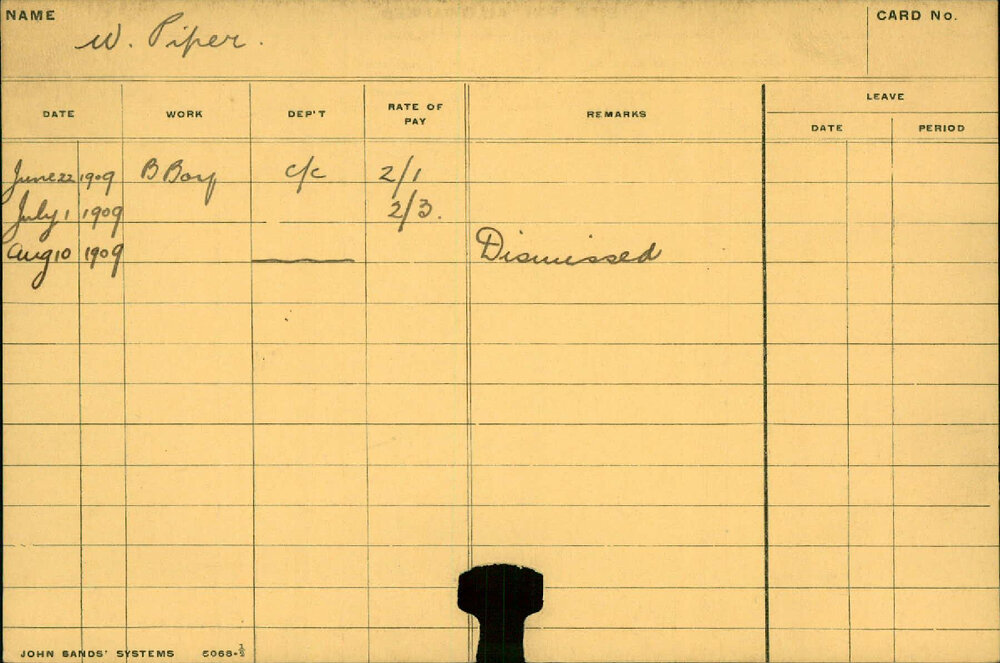 NAME W. Piper. CARD No.
DATE WORK DEP'T RATE OF PAY REMARKS LEAVE
DATE PERIOD
June 22 1909 B Boy c/c 2/1
July 1 1909 2/3.
Aug 10 1909 Dismissed
JOHN SANDS' SYSTEMS 5068-½